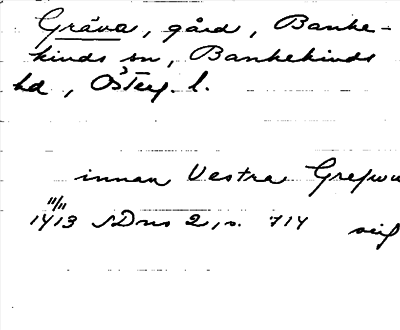 Gräva, gård, Banke-
kinds sn, Bankekinds
hd, Östery. l.
innan Vestra Grefwu
11/11
1413 SDns 2, s. 714